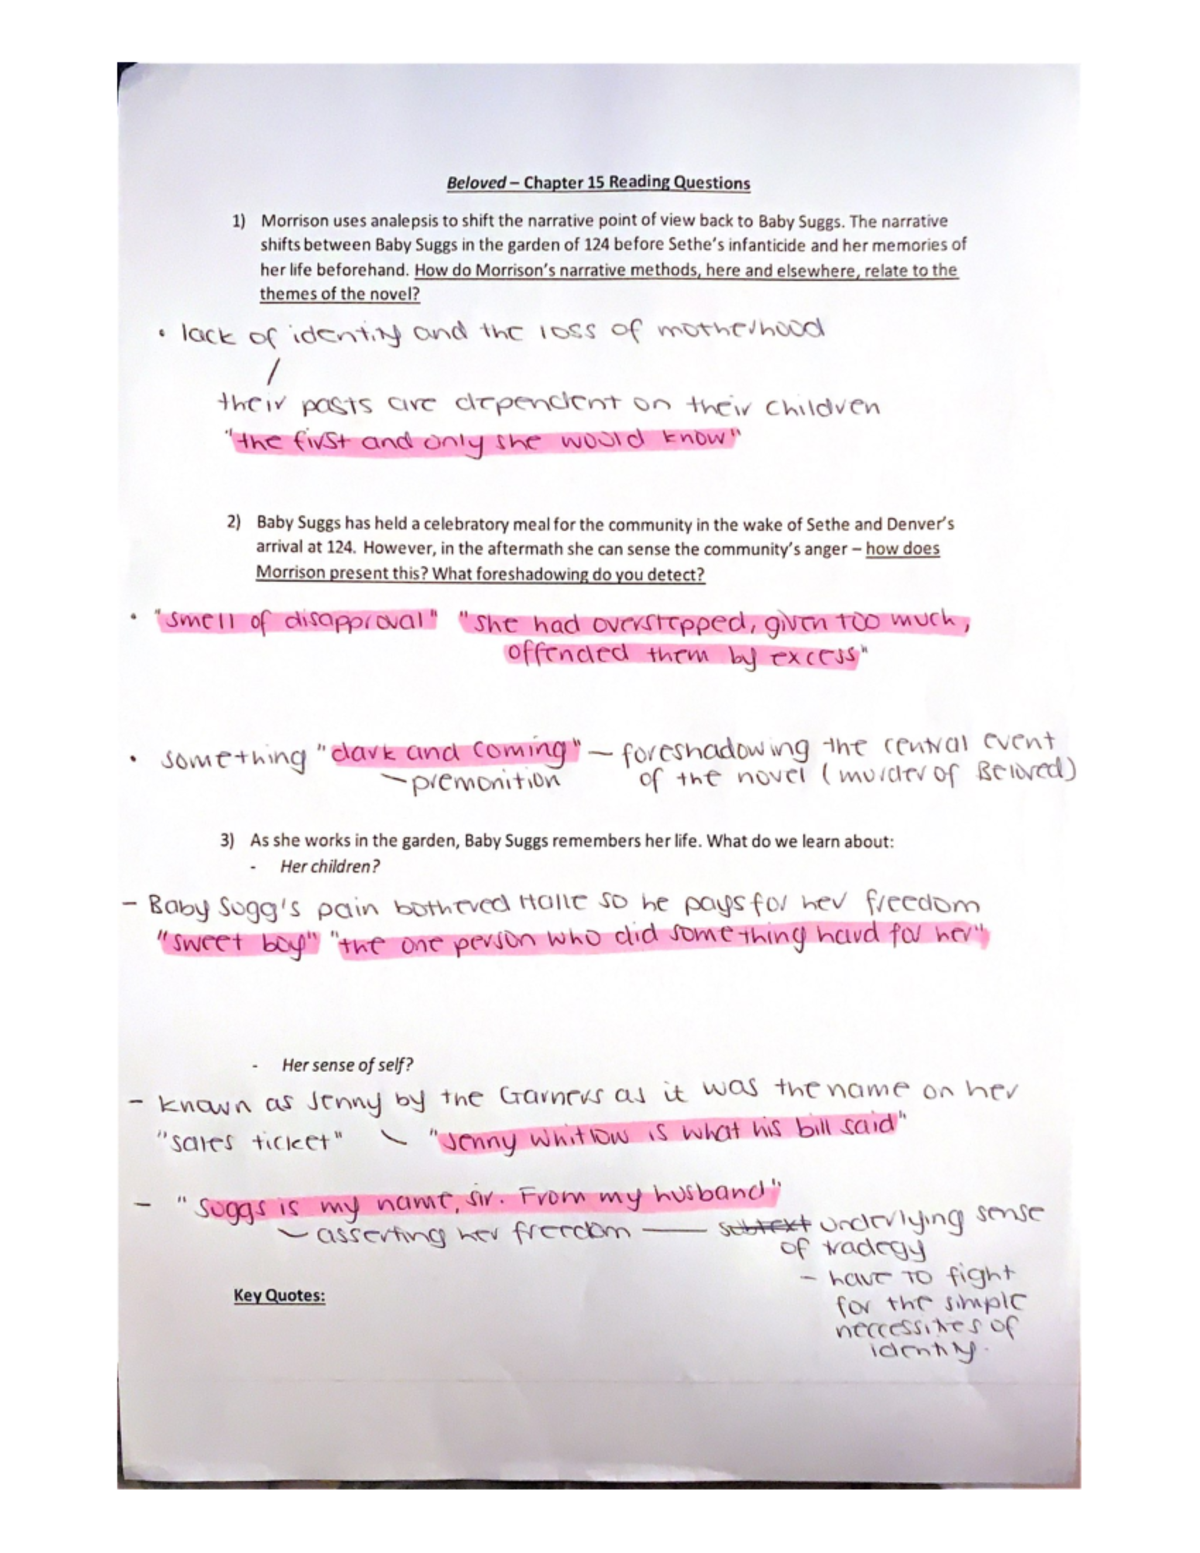 Beloved – Chapter 15 Reading Questions
1) Morrison uses analepsis to shift the narrative point of view back to Baby Suggs. The narrative
shifts between Baby Suggs in the garden of 124 before Sethe's infanticide and her memories of
her life beforehand. How do Morrison's narrative methods, here and elsewhere, relate to the
themes of the novel?
• lack of identity and the loss of motherhood
/
their pasts are dependent on their children
"the first and only she would know"
2) Baby Suggs has held a celebratory meal for the community in the wake of Sethe and Denver's
arrival at 124. However, in the aftermath she can sense the community's anger – how does
Morrison present this? What foreshadowing do you detect?
• "smell of disapproval" "she had overstepped, given too much,
offended them by excess"
• something "dark and coming" — foreshadowing the central event
– premonition of the novel (murder of Beloved)
3) As she works in the garden, Baby Suggs remembers her life. What do we learn about:
- Her children?
– Baby Sugg's pain bothered Halle so he pays for her freedom
"sweet boy" "the one person who did something hard for her"
- Her sense of self?
– known as Jenny by the Garners as it was the name on her
"sales ticket" – "Jenny Whitlow is what his bill said"
– "Suggs is my name, sir. From my husband"
– asserting her freedom — subtext underlying sense
of tradegy
– have to fight
for the simple
neccessites of
identity.
Key Quotes: